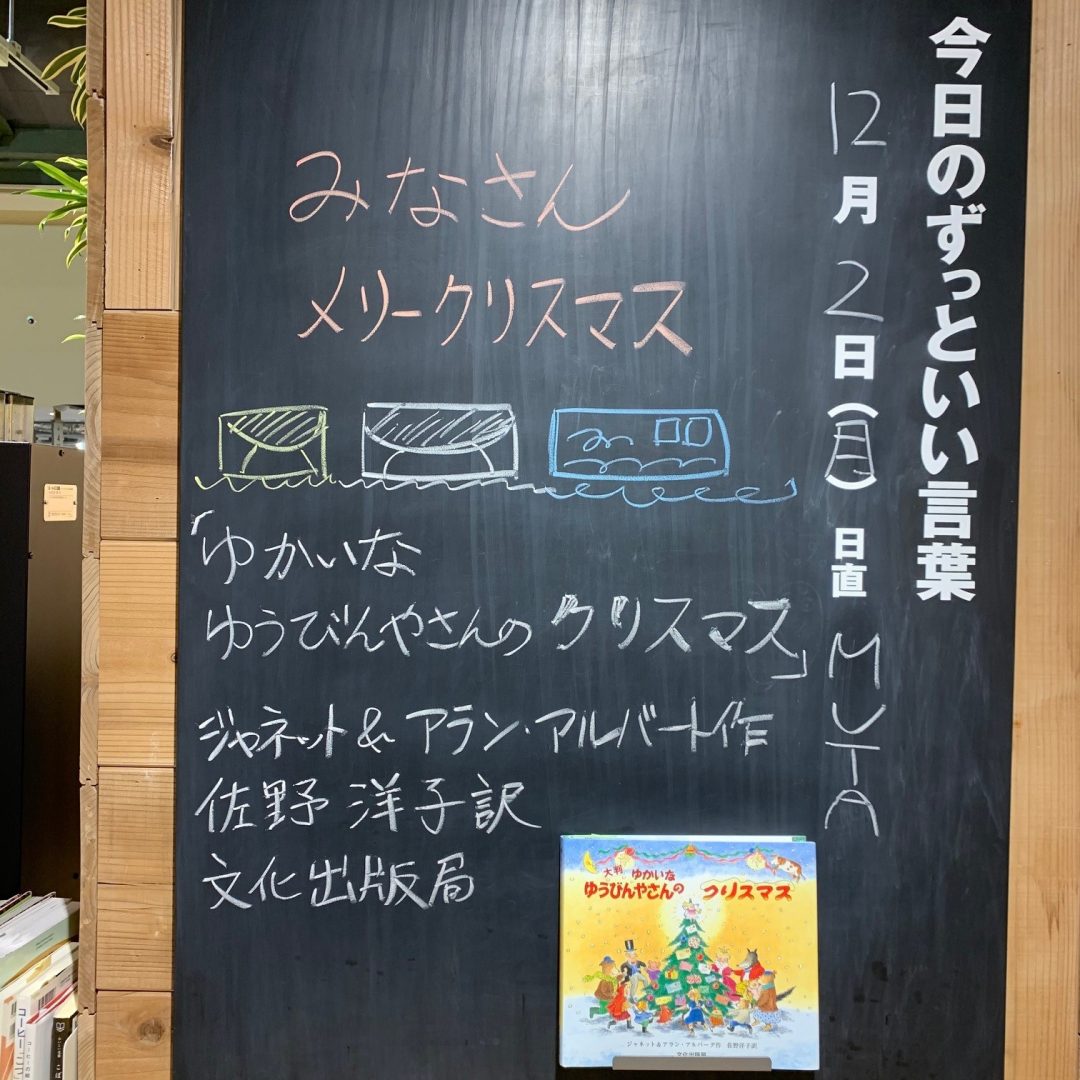 今日のずっといい言葉
12月2日(月) 日直 MUTA
みなさん
メリークリスマス
「ゆかいな
ゆうびんやさんのクリスマス」
ジャネット&アラン・アルバート作
佐野洋子訳
文化出版局
大判 ゆかいな
ゆうびんやさんの クリスマス
ジャネット&アラン・アルバーグ作 佐野洋子訳
文化出版局